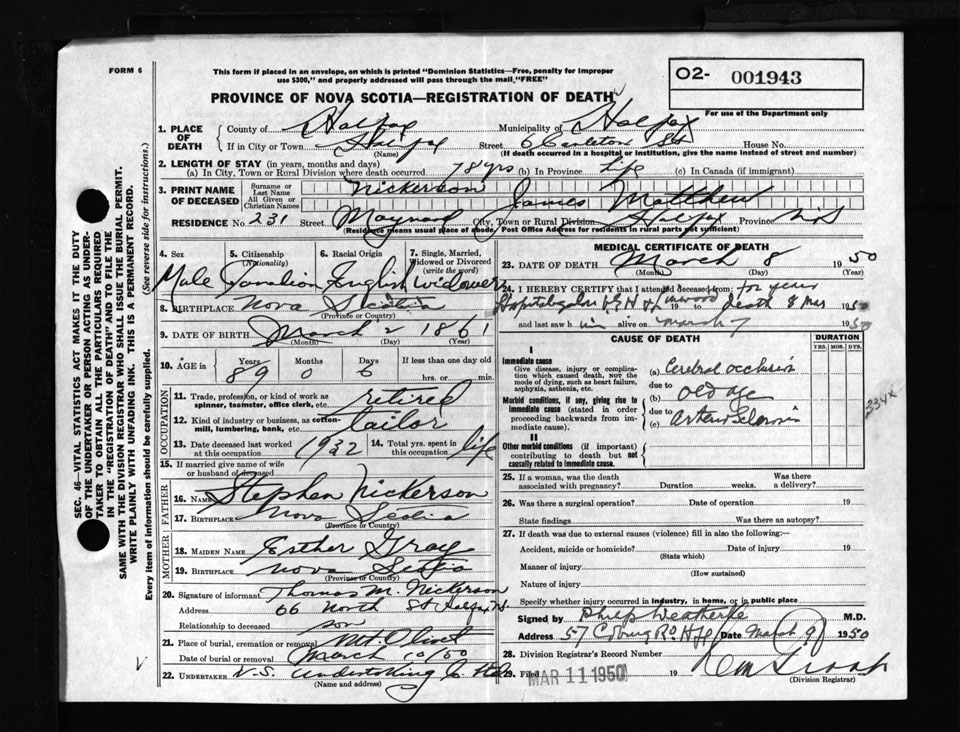 FORM 6
This form if placed in an envelope, on which is printed "Dominion Statistics—Free, penalty for improper
use $300," and properly addressed will pass through the mail "FREE"
O2- 001943
PROVINCE OF NOVA SCOTIA—REGISTRATION OF DEATH
For use of the Department only
1. PLACE OF DEATH
County of Halifax Municipality of Halifax
If in City or Town Halifax Street 6 Carleton St House No.
(Name) (If death occurred in a hospital or institution, give the name instead of street and number)
2. LENGTH OF STAY (in years, months and days)
(a) In City, Town or Rural Division where death occurred 78 yrs (b) In Province life (c) In Canada (if immigrant)
3. PRINT NAME OF DECEASED
Surname or Last Name Nickerson
All Given or Christian Names James Matthew
RESIDENCE No 231 Street Maynard City, Town or Rural Division Halifax Province N.S
(Residence means usual place of abode. Post Office Address for residents in rural parts not sufficient)
4. Sex
Male
5. Citizenship
(Nationality)
Canadian
6. Racial Origin
English
7. Single, Married, Widowed or Divorced
(write the word)
Widower
8. BIRTHPLACE Nova Scotia
(Province or Country)
9. DATE OF BIRTH March 2 1861
(Month) (Day) (Year)
10. AGE in
Years Months Days If less than one day old
89 0 6 hrs. or min.
OCCUPATION
11. Trade, profession, or kind of work as
spinner, teamster, office clerk, etc. retired
12. Kind of industry or business, as cotton-
mill, lumbering, bank, etc. tailor
13. Date deceased last worked
at this occupation 1932
14. Total yrs. spent in
this occupation life
15. If married give name of wife
or husband of deceased
FATHER
16. NAME Stephen Nickerson
17. BIRTHPLACE Nova Scotia
(Province or Country)
MOTHER
18. MAIDEN NAME Esther Gray
19. BIRTHPLACE Nova Scotia
(Province or Country)
20. Signature of informant Thomas M. Nickerson
Address 66 North St Halifax N.S.
Relationship to deceased son
21. Place of burial, cremation or removal Mt. Olivet
Date of burial or removal March 10/50
22. UNDERTAKER N.S. Undertaking Co
(Name and address)
MEDICAL CERTIFICATE OF DEATH
23. DATE OF DEATH March 8 1950
(Month) (Day) (Year)
24. I HEREBY CERTIFY that I attended deceased from: for years
death 8 Mar 1950
and last saw h im alive on March 7 1950
CAUSE OF DEATH
DURATION
YRS. MOS. DYS.
I
Immediate cause
Give disease, injury or complica-
tion which caused death, NOT the
mode of dying, such as heart failure,
asphyxia, asthenia, etc.
(a) Cerebral occlusion
due to
Morbid conditions, if any, giving rise to
immediate cause (stated in order
proceeding backwards from im-
mediate cause).
(b) Old age
due to
(c)
334x
II
Other morbid conditions (if important)
contributing to death but not
causally related to immediate cause.
25. If a woman, was the death
associated with pregnancy? Duration weeks. Was there
a delivery?
26. Was there a surgical operation? Date of operation 19
State findings Was there an autopsy?
27. If death was due to external causes (violence) fill in also the following:—
Accident, suicide or homicide? Date of injury 19
(State which)
Manner of injury
(How sustained)
Nature of injury
Specify whether injury occurred in industry, in home, or in public place
Signed by M.D.
Address 57 Coburg Rd Hfx Date March 9 1950
28. Division Registrar's Record Number
29. Filed MAR 11 1950 19
(Division Registrar)
SEC. 46—VITAL STATISTICS ACT MAKES IT THE DUTY
OF THE UNDERTAKER OR PERSON ACTING AS UNDER-
TAKER TO OBTAIN ALL THE PARTICULARS REQUIRED
IN THE "REGISTRATION OF DEATH" AND TO FILE THE
SAME WITH THE DIVISION REGISTRAR WHO SHALL ISSUE THE BURIAL PERMIT.
WRITE PLAINLY WITH UNFADING INK. THIS IS A PERMANENT RECORD.
Every item of information should be carefully supplied. (See reverse side for instructions.)